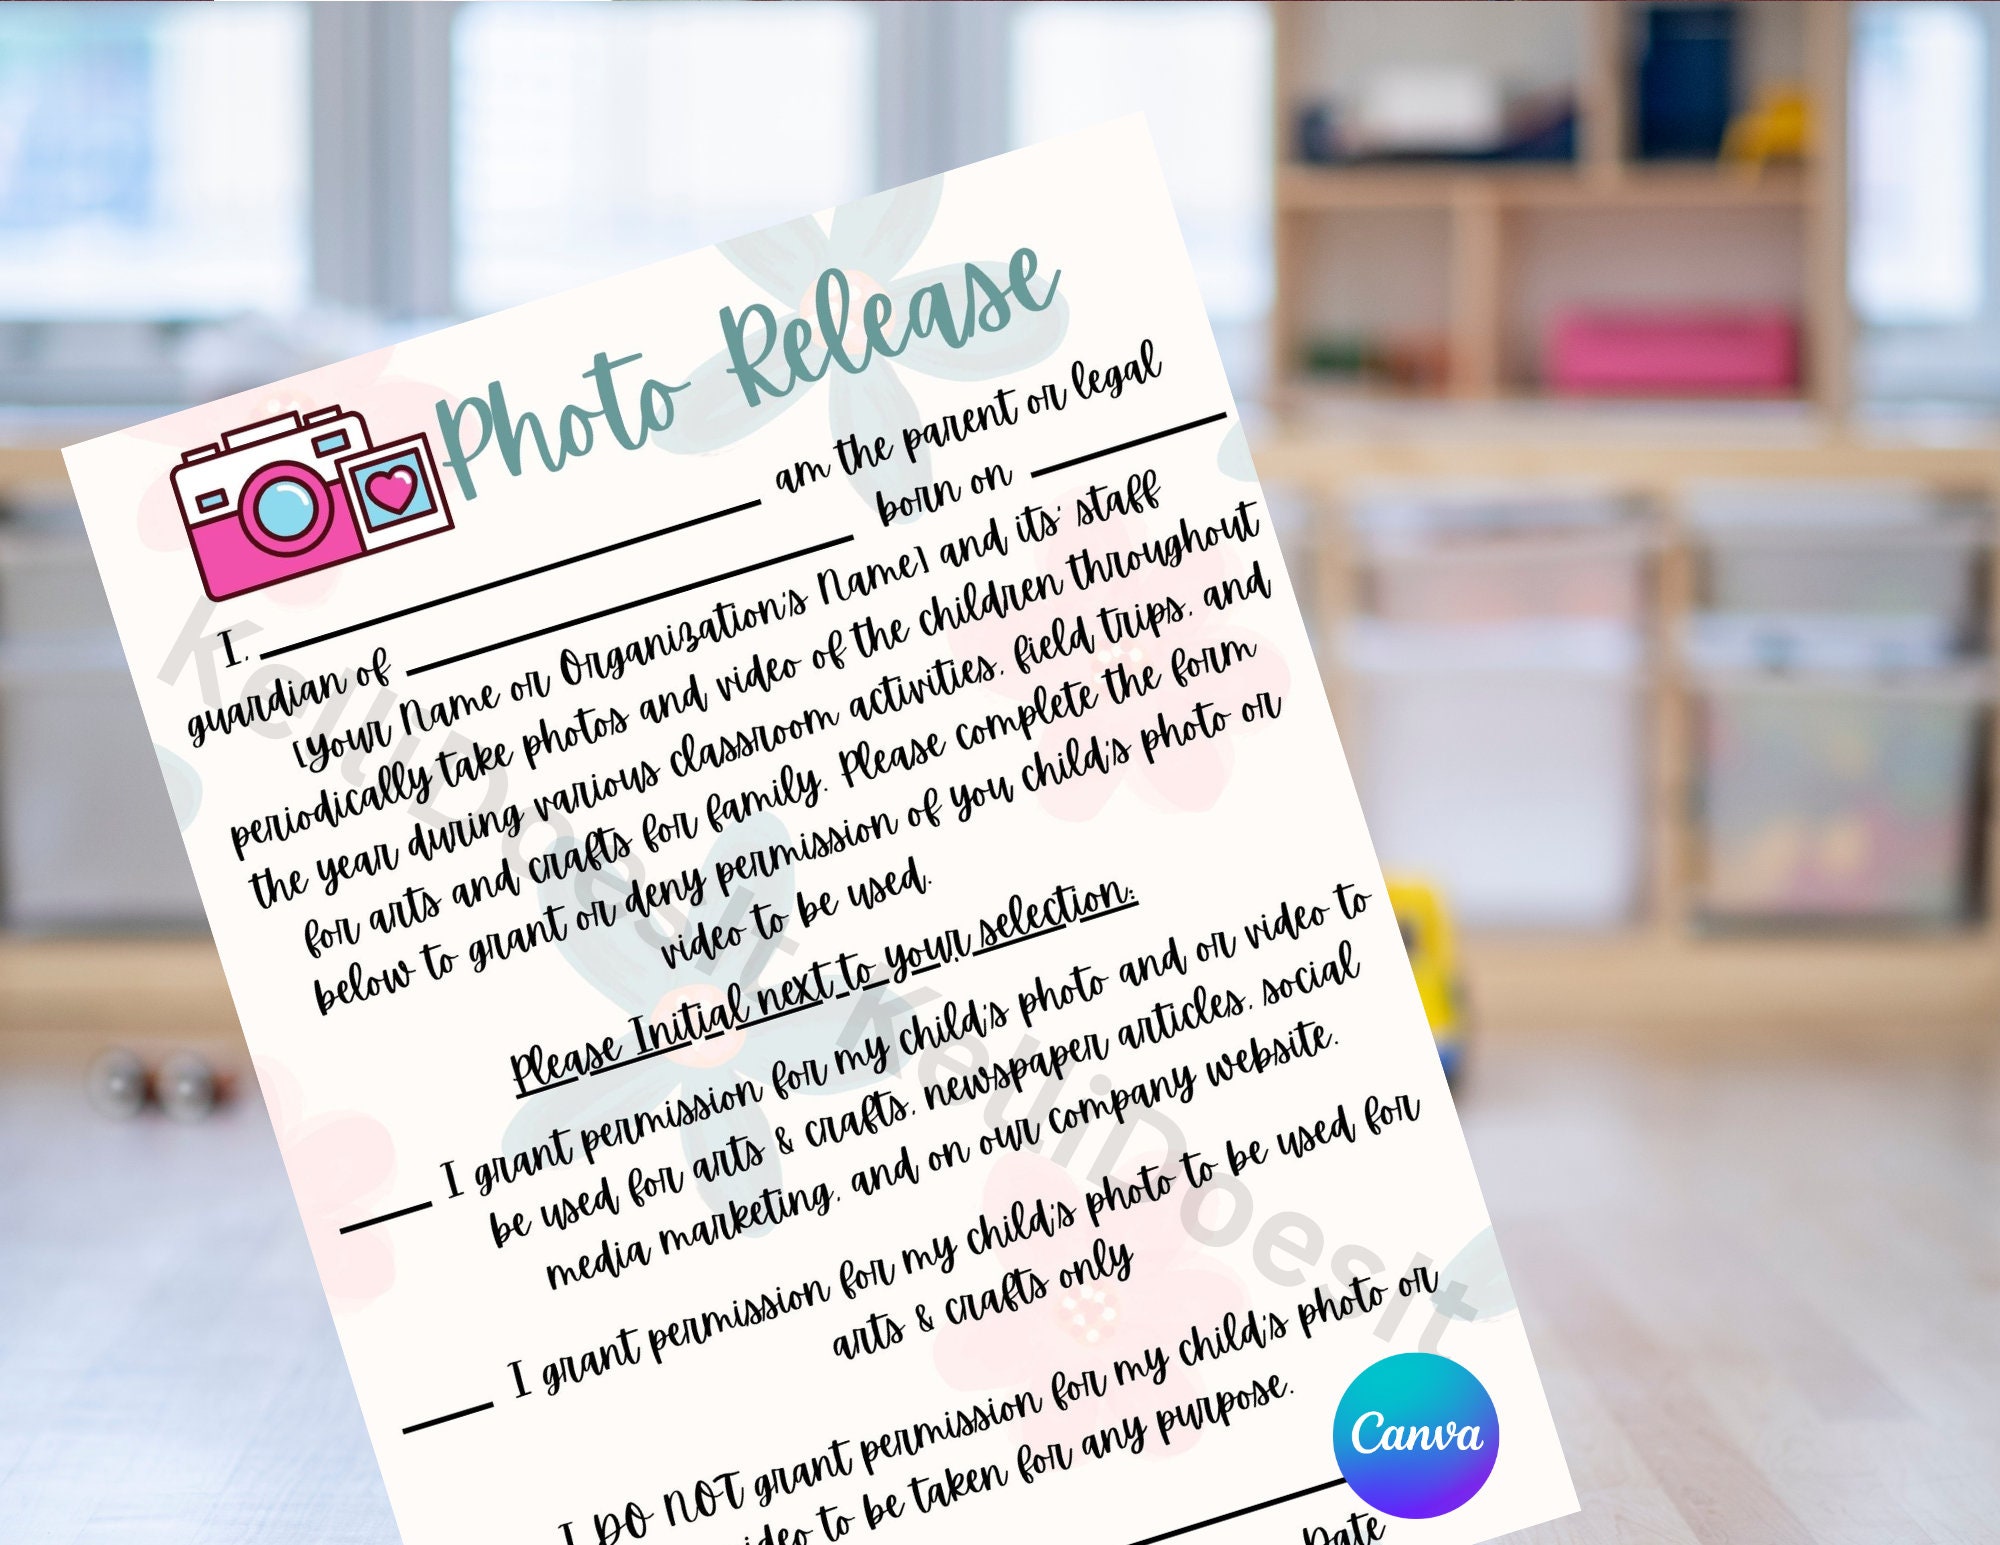 Photo Release
I, ____ am the parent or legal
guardian of ____ born on ____
[Your Name or Organization's Name] and its' staff
periodically take photos and video of the children throughout
the year during various classroom activities, field trips, and
for arts and crafts for family. Please complete the form
below to grant or deny permission of you child's photo or
video to be used.
Please Initial next to your selection:
____ I grant permission for my child's photo and or video to
be used for arts & crafts, newspaper articles, social
media marketing, and on our company website.
____ I grant permission for my child's photo to be used for
arts & crafts only
I DO NOT grant permission for my child's photo or
video to be taken for any purpose.
Date
Canva
KelliDoesIt KelliDoesIt